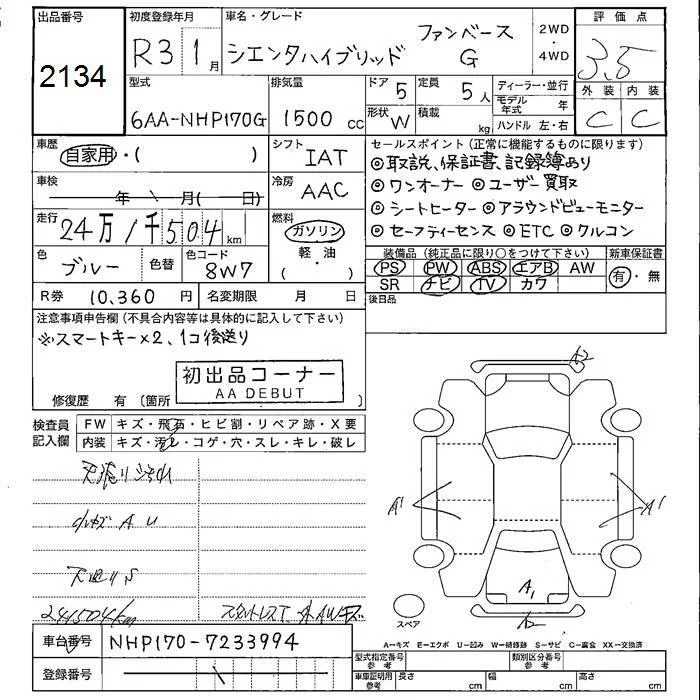 出品番号
2134
初度登録年月
R3 1月
車名・グレード
シエンタハイブリッド
ファンベース
G
2WD
・
4WD
評価点
3.5
外装 内装
C C
型式
6AA-NHP170G
排気量
1500 cc
ドア 5
定員 5人
形状 W
積載 kg
ディーラー・並行
モデル年式 年
ハンドル 左・右
車歴
自家用・( )
シフト
IAT
セールスポイント(正常に機能するものに限ります)
◎取説、保証書、記録簿あり
◎ワンオーナー ◎ユーザー買取
◎シートヒーター ◎アラウンドビューモニター
◎セーフティーセンス ◎ETC ◎クルコン
車検
年 月( 日)
冷房
AAC
走行
24万1千504km
燃料
ガソリン
軽・油
( )
色
ブルー
色替
色コード
8W7
装備品(純正品に限り○をつけて下さい)
PS PW ABS エアB AW
SR チビ TV カワ
新車保証書
有・無
R券 10,360 円
名変期限 月 日
後日品
注意事項申告欄(不具合内容等は具体的に記入して下さい)
※スマートキー×2、1コ後送り
初出品コーナー
AA DEBUT
修復歴 有(箇所 )
検査員
記入欄
FW キズ・飛石・ヒビ割・リペア跡・X要
内装 キズ・汚れ・コゲ・穴・スレ・キレ・破レ
天張りシミ汚れ
小キズ A U
241504km
A2
A1
A1
A1
スペア
車台番号 NHP170-7233994
登録番号
A−キズ E−エクボ U−凹み W−補修跡 S−サビ C−腐食 XX−交換済
型式指定番号
参考
類別区分番号
参考
車庫証明用
参考
長さ cm
幅 cm
高さ cm